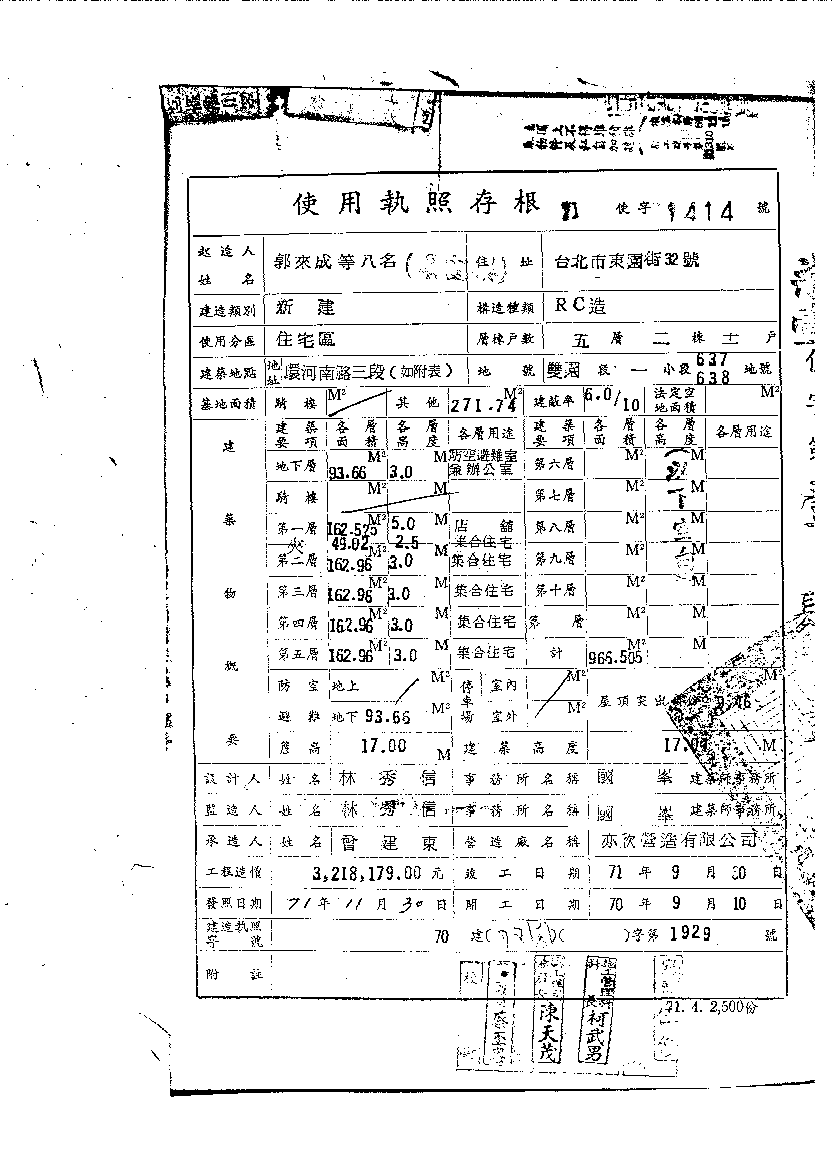 使用執照存根 71 使字 1414 號
起造人姓名 郭來成等八名 住址 台北市東園街32號
建造類別 新建 構造種類 RC造
使用分區 住宅區 層棟戶數 五層二棟士戶
建築地點 地址 環河南路三段(如附表) 地號 雙園段一小段 637 638 地號
基地面積 騎樓 M² 其他 271.74 M² 建蔽率 6.0/10 法定空地面積 M²
建築物概要 建築要項 各層面積 各層高度 各層用途 建築要項 各層面積 各層高度 各層用途
地下層 93.66 M² 3.0 M 防空避難室兼辦公室 第六層 M² M
騎樓 M² M 第七層 M² M
第一層 162.525 M² 5.0 M 店舖 第八層 M² M
夾 49.02 2.5 集合住宅
第二層 162.96 M² 3.0 M 集合住宅 第九層 M² M
第三層 162.96 M² 3.0 M 集合住宅 第十層 M² M
第四層 162.96 M² 3.0 M 集合住宅 第 層 M² M
第五層 162.96 M² 3.0 M 集合住宅 計 966.505 M² M
防空避難 地上 M² 停車場 室內 M² 屋頂突出 9.46 M²
地下 93.66 M² 室外 M²
簷高 17.00 M 建築高度 17.00 M
設計人 姓名 林秀信 事務所名稱 國峯建築師事務所
監造人 姓名 林秀信 事務所名稱 國峯建築師事務所
承造人 姓名 曾建東 營造廠名稱 亦欣營造有限公司
工程造價 3,218,179.00 元 竣工日期 71年9月30日
發照日期 71年11月30日 開工日期 70年9月10日
建造執照字號 70 建( )字第 1929 號
附註
陳天茂
柯武男
71. 4. 2,500份